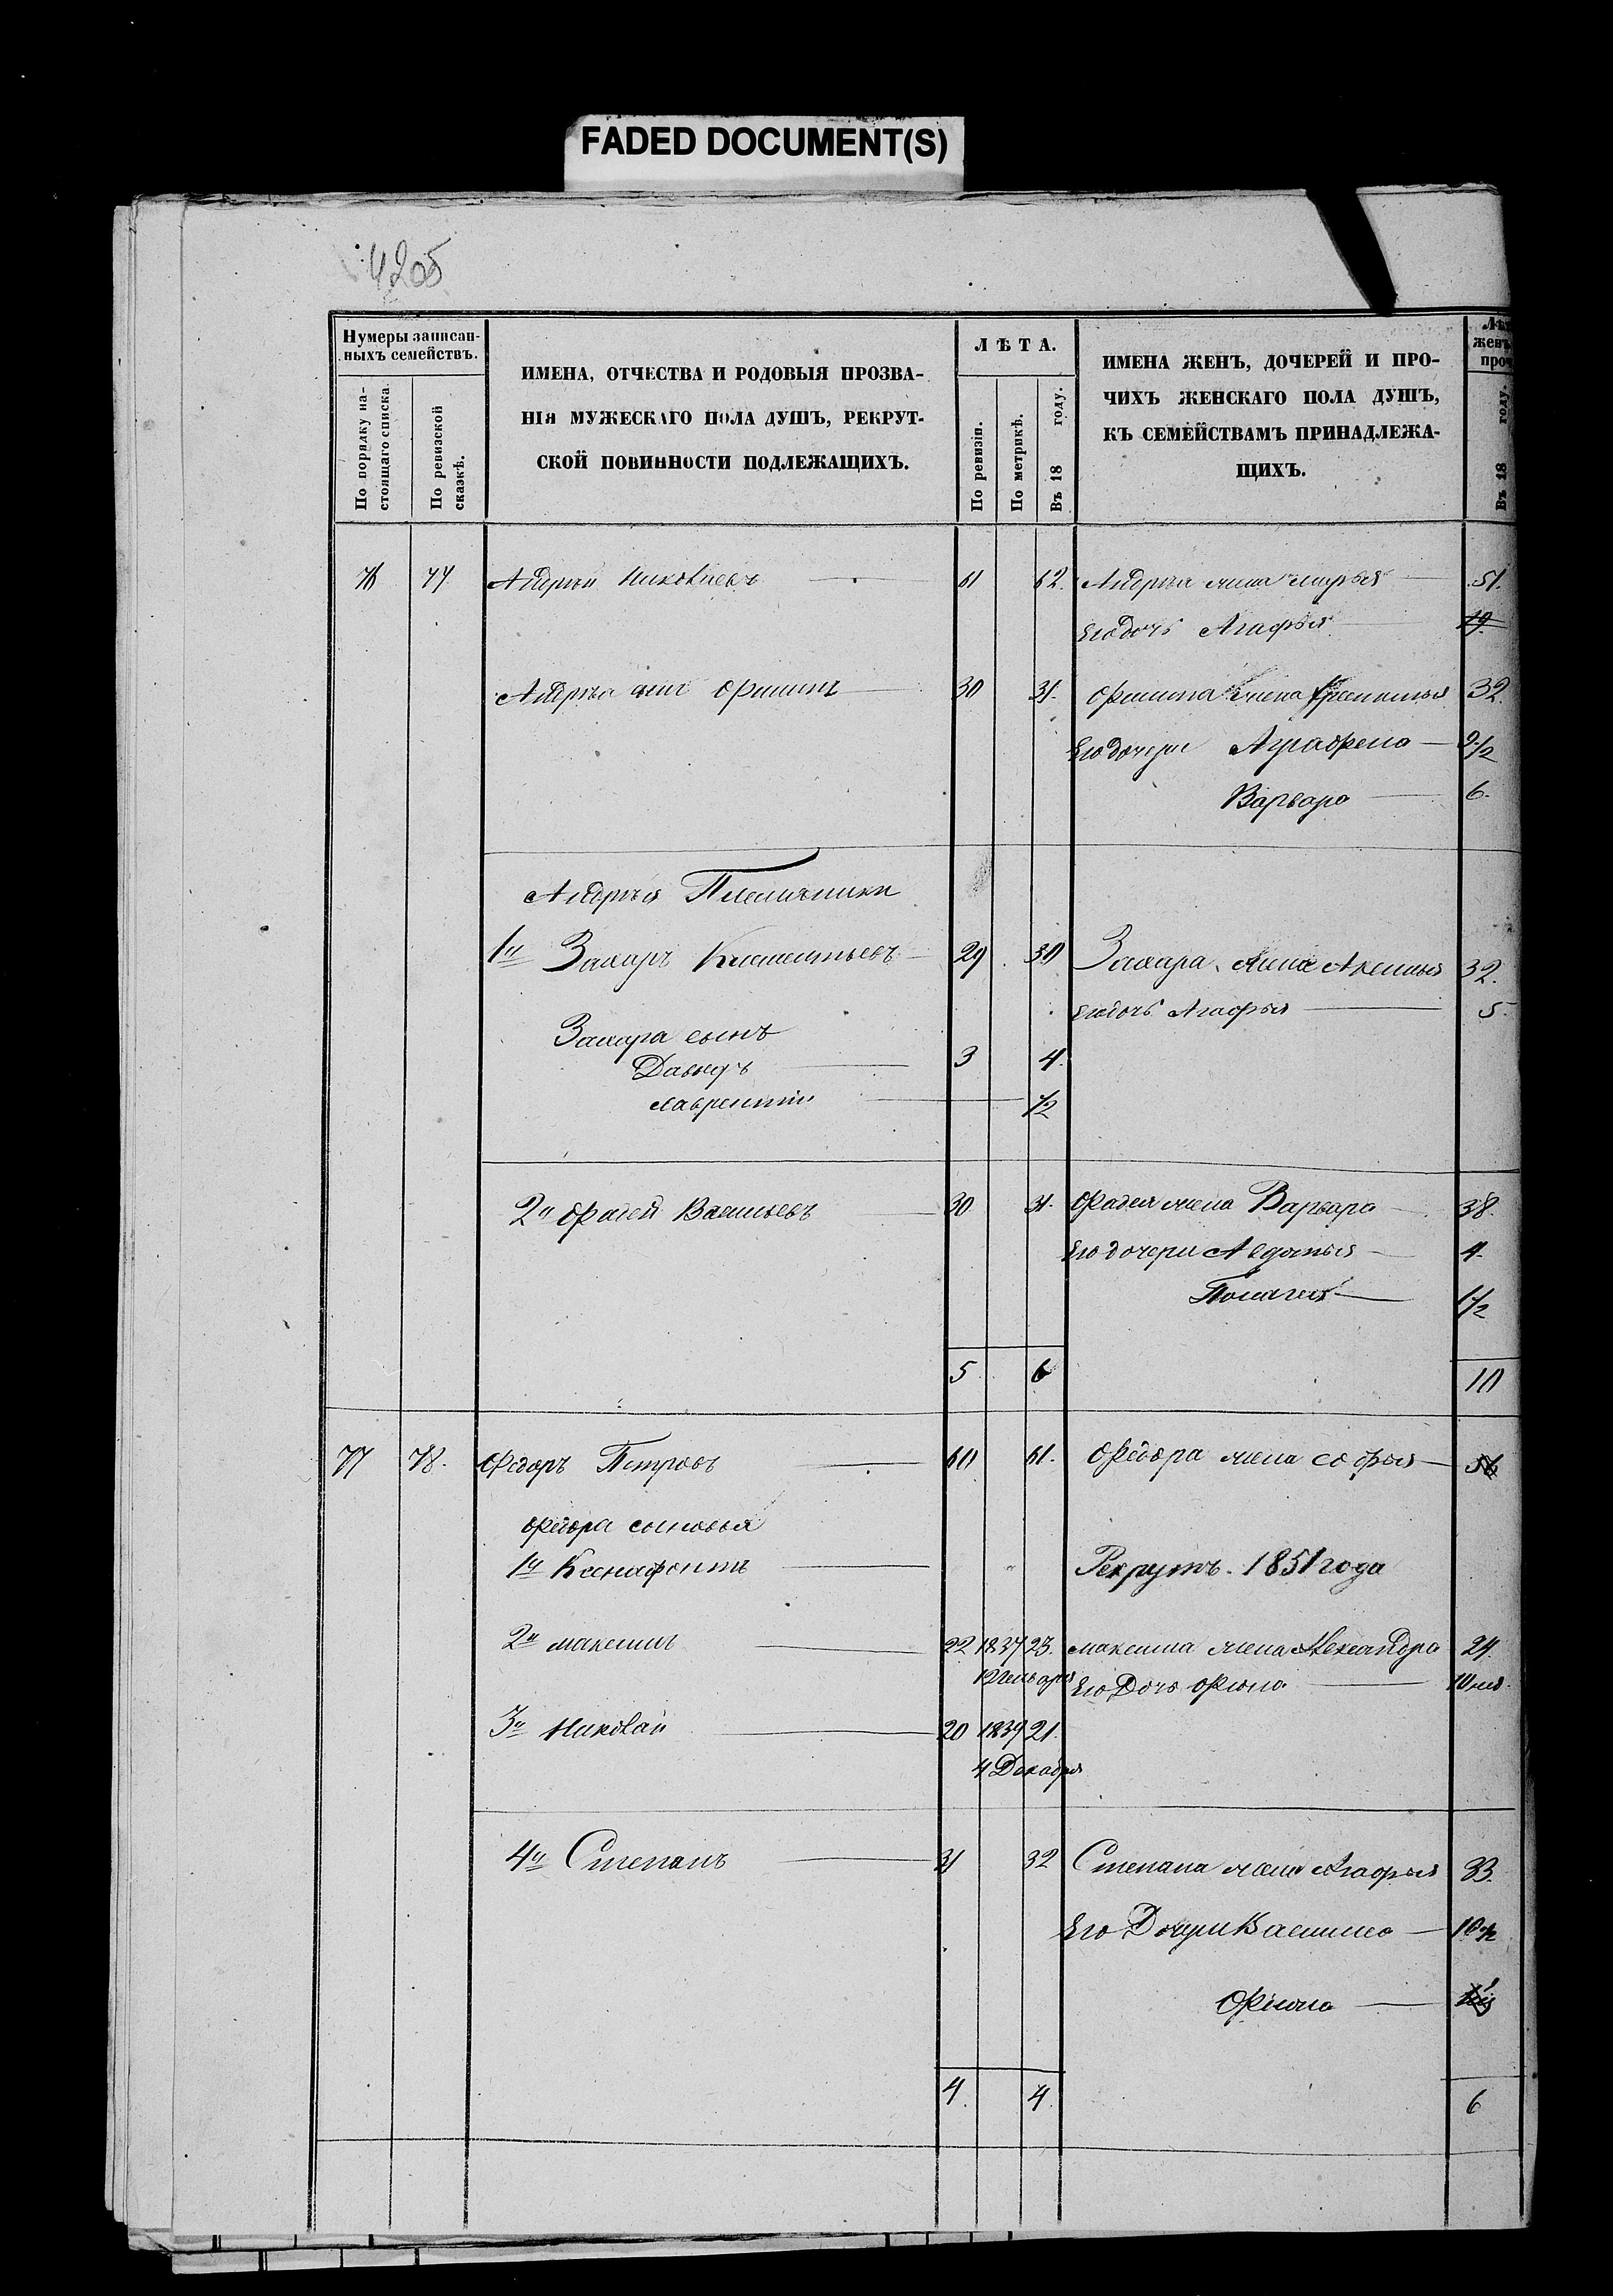 FADED DOCUMENT(S)
4205
Нумеры записан-
ныхъ семействъ.
По порядку на-
стоящаго списка
По ревизской
сказкѣ.
ИМЕНА, ОТЧЕСТВА И РОДОВЫЯ ПРОЗВА-
НІЯ МУЖЕСКАГО ПОЛА ДУШЪ, РЕКРУТ-
СКОЙ ПОВИННОСТИ ПОДЛЕЖАЩИХЪ.
ЛѢТА.
По ревизіи.
По метрикѣ.
Въ 18 году.
ИМЕНА ЖЕНЪ, ДОЧЕРЕЙ И ПРО-
ЧИХЪ ЖЕНСКАГО ПОЛА ДУШЪ,
КЪ СЕМЕЙСТВАМЪ ПРИНАДЛЕЖА-
ЩИХЪ.
Лѣт
женъ
проч
Въ 18 году.
76 77 Андрей Николаевъ 61 62. Андрея жена Марья 51.
Его дочь Агафья 19
Андрея сынъ Филипъ 30 31. Филипа жена 32.
Его дочери Аграфена 9 1/2
Варвара 6.
Андрея Племянники
1й Захаръ Климентьевъ 29 30 Захара жена Аксинья 32.
Его дочь Агафья 5.
Захара сынъ
Давыдъ 3 4.
Лаврентий 1/2
2й Фадей Васильевъ 30 31. Фадея жена Варвара 38.
Его дочери Авдотья 4.
Пелагея 1 1/2
5 6 10
77 78. Федоръ Петровъ 60 61. Федора жена Софья 56
Федора сыновья
1й Ксенафонтъ Рекрутъ. 1851 года
2й Максимъ 22 1837 23. Максима жена Александра 24.
12 Генваря Его Дочь Фіона 10 нед.
3й Николай 20 1839 21.
4 Декабря
4й Степанъ 31 32 Степана жена Агафья 33.
Его Дочери Василиса 10 1/2
Фіона
4. 4. 6